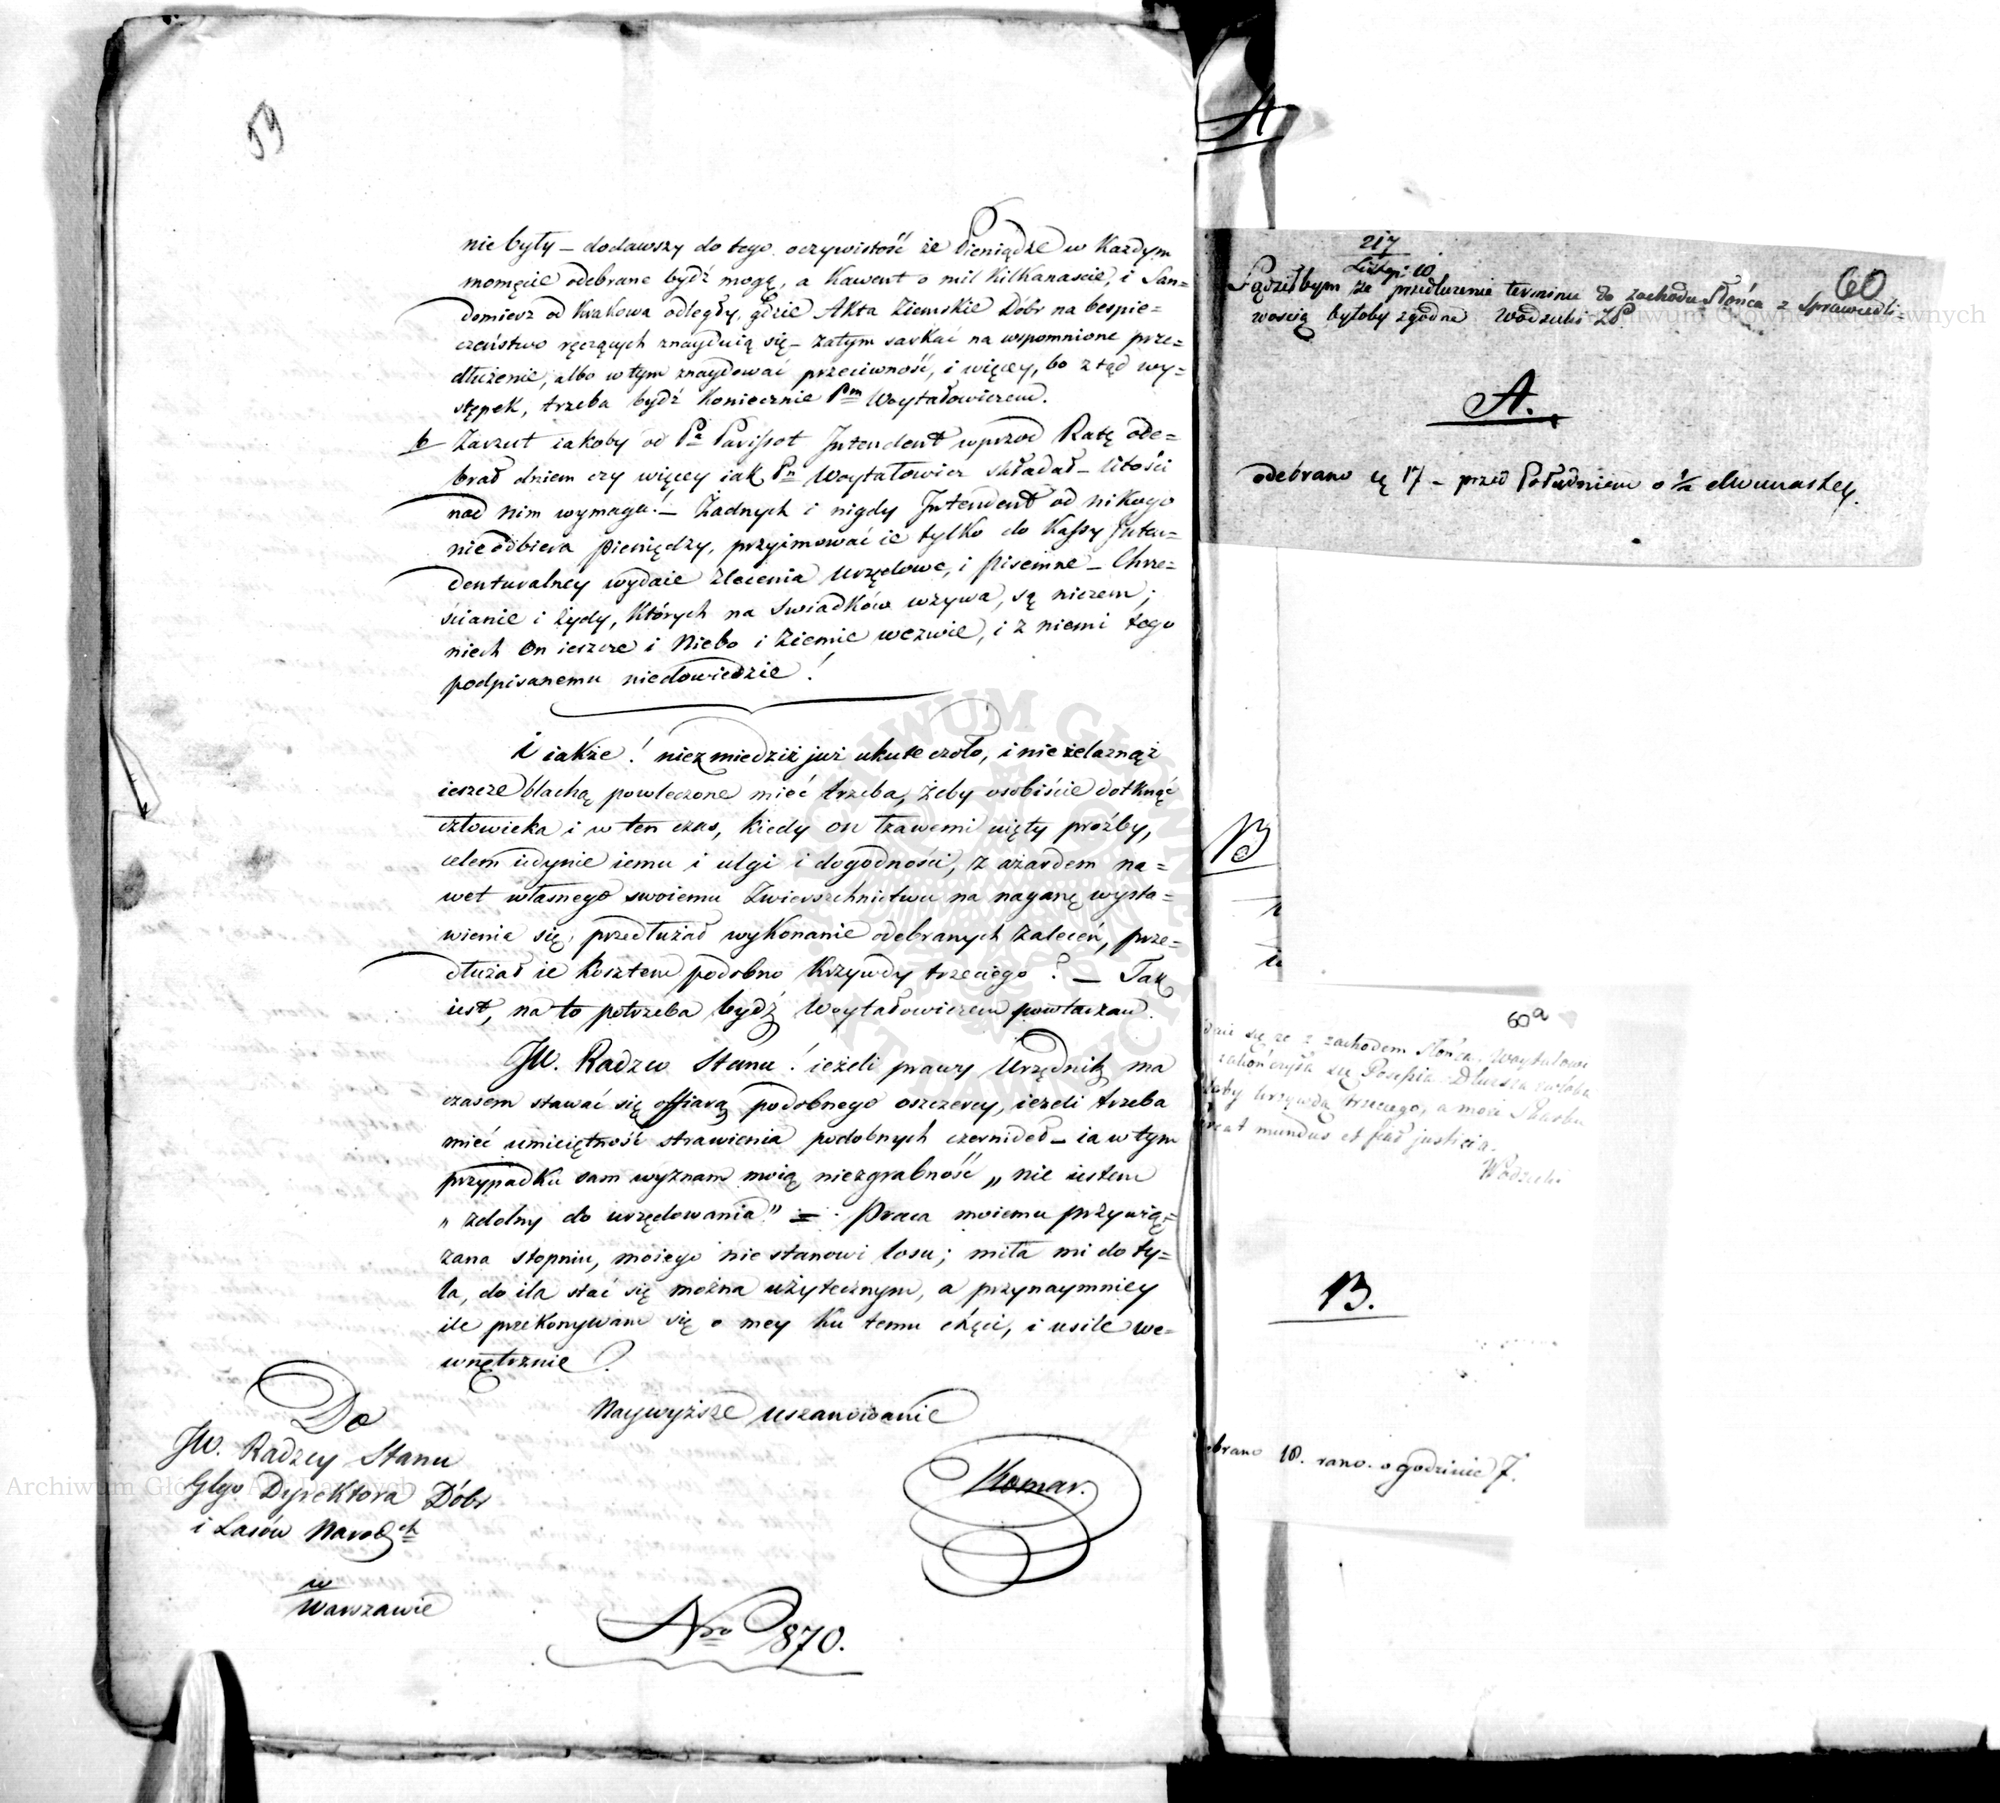 59
nie były – dodawszy do tego oczywistość że Pieniądze w Każdym
momęcie odebrane bydź mogą, a Kawent o mil Kilkanascie, i San=
domierz od Krakowa odległy, gdzie Akta Ziemskie Dóbr na bespie=
czeństwo ręczących znayduią się – zatym sarkać na wspomnione prze=
dłużenie, albo w tym znaydować przeciwność, i więcey, bo ztąd wy=
stępek, trzeba bydź Koniecznie Pm Woytałowiczem.
b Zarzut iakoby od Pa Parissot Intendent wprzod Ratę ode=
brał dniem czy więcey iak Pn Woytałowicz składał – litości
nad nim wymaga! – Żadnych i nigdy Intendent od nikogo
nie odbiera pieniędzy, przyimować ie tylko do Kassy Inten=
denturalney wydaie zlecenia urzędowe, i pisemne – Chrze=
ścianie i żydy, których na świadków wzywa, są niczem;
niech On ieszcze i Niebo i Ziemie wezwie, i z niemi tego
podpisanemu niedowiedzie!
i iakże! niezmiedziż już ukute czoło, i nie żelaznąż
ieszcze blachą powleczone mieć trzeba, żeby osobiście dotknąć
człowieka i w ten czas, kiedy on łzawemi uięty proźby,
celem iedynie iemu i ulgi i dogodności, z azardem na=
wet własnego swoiemu Zwierzchnictwu na naganę wysta=
wienia się, przedłużał wykonanie odebranych zaleceń, prze=
dłużał ie kosztem podobno krzywdy trzeciego? – Tak
iest, na to potrzeba bydź Woytałowiczem powtarzam.
JW. Radzco Stanu! ieżeli prawy Urzędnik ma
czasem stawać się offiarą podobnego oszczercy, ieżeli trzeba
mieć umieiętność strawienia podobnych czernideł – ia w tym
przypadku sam wyznam moią niezgrabność „ nie iestem
„ zdolny do urzędowania” = Praca moiemu przywią=
zana stopniu, moiego nie stanowi losu; miła mi do ty=
la, do ila stać się można użytecznym, a przynaymniey
ile przekonywam się o mey ku temu chęci, i usile we=
wnętrznie.
Naywyższe uszanowanie
Komar.
Do
JW. Radzcy Stanu
Glgo Dyrektora Dóbr
i Lasów Narodch
w
Warszawie
Nro 870.
A
217
Listop: 10
60
Sądziłbym że przedłużenie terminu do zachodu Słońca z Sprawiedli=
wością byłoby zgodne Wodzicki
A.
odebrano d. 17 – przed Południem o ½ dwunastey.
B
60a
się że z zachodem Słońca Woytałowi
zakończyła się Possessia. Dłuższa zwłoka
krzywdą trzeciego, a może Skarbu
mundus et fiat justicia.
Wodzicki
B.
brano 18. rano o godzinie 7.
Archiwum Główne Akt Dawnych
Archiwum Główne Akt Dawnych
ARCHIWUM GŁÓWNE AKT DAWNYCH